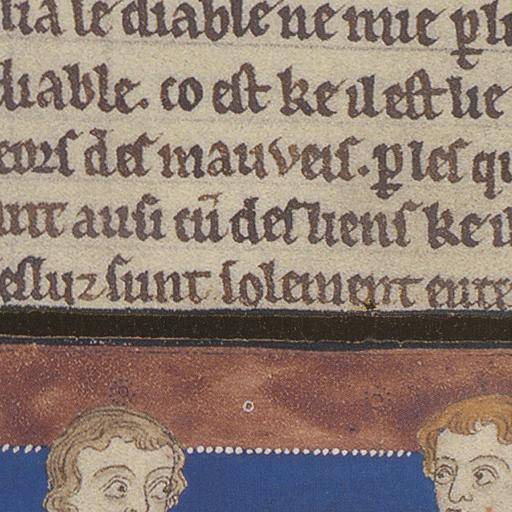 lia le diable ne nue ꝑ
diable. co est ke il est lie
eors des mauveis. ꝑ les qu
ant ausi cū des liens ke il
esluz sunt solement entre